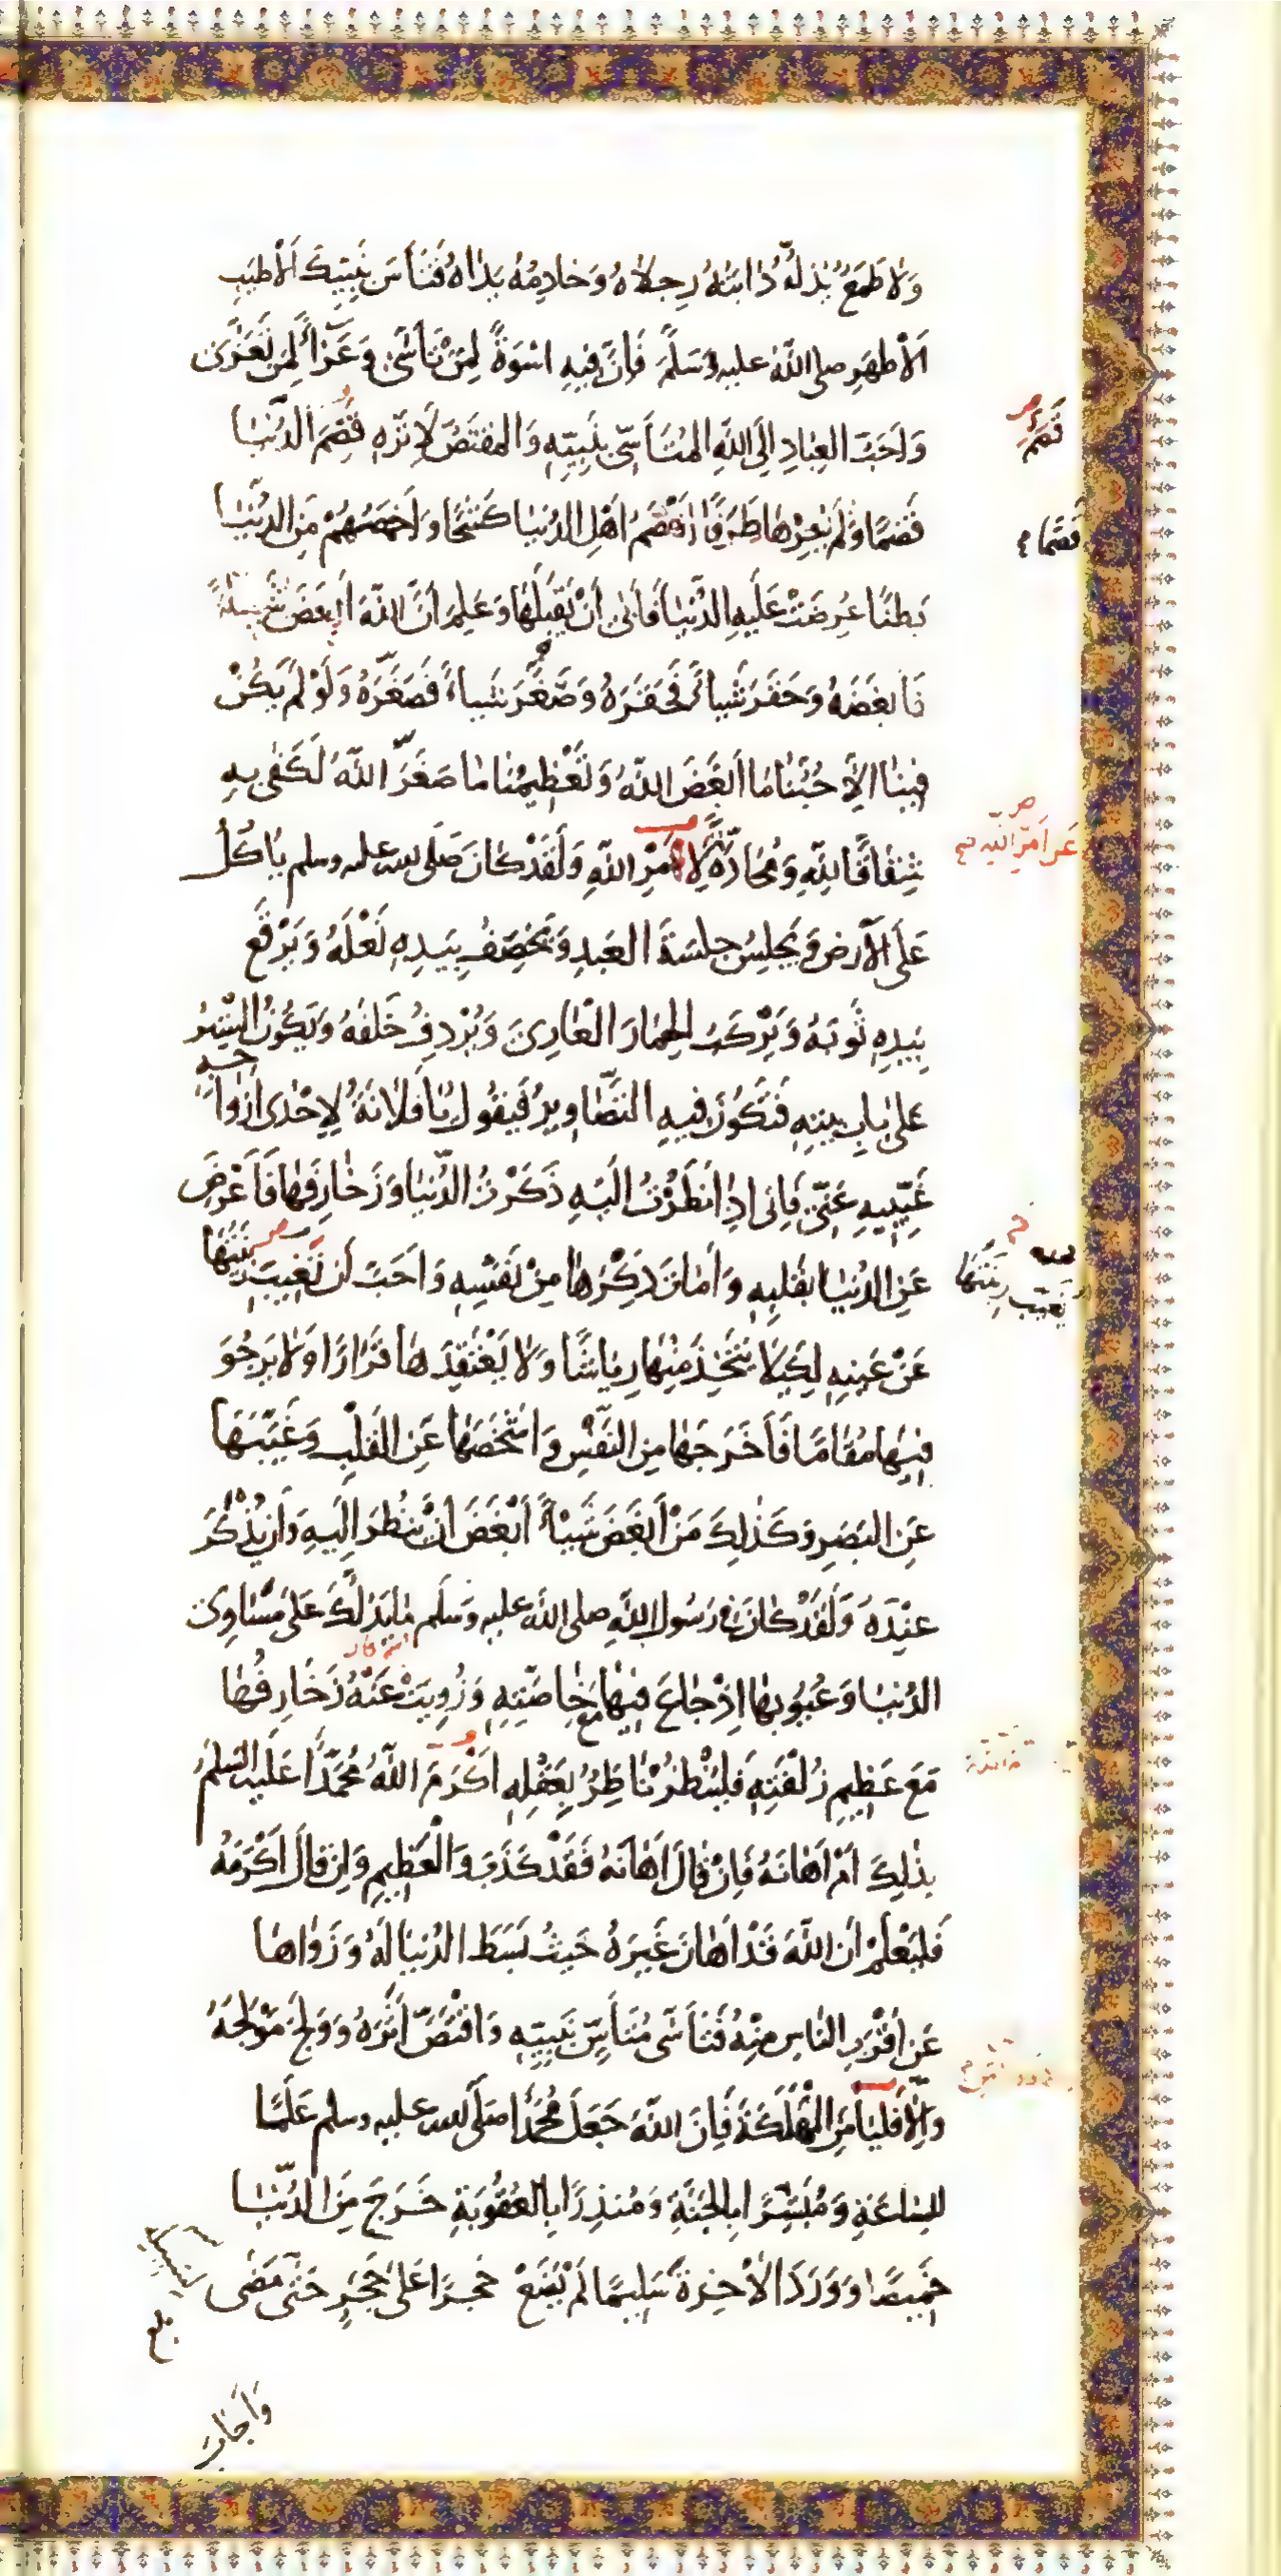 وَلاٰ طَمَعٌ يُذِلُّهُ دٰابَّتُهُ رِجلاٰهُ وَخٰادِمُهُ يَدٰاهُ فَتَأَسَّ بِنَبِيِّكَ اَلْاَطيَبِ
اَلْاَطهَرِ صلى اللّٰه عليه وَسَلَّمَ فَاِنَّ فِيهِ اسْوَةً لِمَنْ تَأَسّٰى وَعَزٰآءً لِمَن تَعَزّٰى
وَاَحَبُّ العِبٰادِ اِلَى اللّٰهِ المُتَأَسِّى بِنَبِيِّهٖ وَالمُقتَصُّ لِاَثَرِهٖ قَضَمَ الدُّنيٰا
قَضمًا وَلَم يُعِرْهٰا طَرفًا اَهضَمُ اَهْلِ الدُّنيٰا كَشحًا وَاَخمَصُهُمْ مِنَ الدُّنيٰا
بَطنًا عُرِضَتْ عَلَيهِ الدُّنيٰا فَاَبٰى اَنْ يَقبَلَهٰا وَعَلِمَ اَنَّ اللّٰهَ اَبغَضَ شَيئًا
فَاَبغَضَهُ وَحَقَّرَ شَيئًا فَحَقَّرَهُ وَصَغَّرَ شَيئاً فَصَغَّرَهُ وَلَوْ لَم يَكُنْ
فِينٰا اِلاّٰ حُبُّنٰا مٰا اَبغَضَ اللّٰهُ وَتَعْظِيمُنٰا مٰا صَغَّرَ اللّٰهُ لَكَفٰى بِهِ
شِقٰاقًا لِلّٰهِ وَمُحٰادَّةً عَن اَمْرِ اللّٰهِ وَلَقَدْ كٰانَ صَلى الله عليه وسلم يَأكُلُ
عَلَى الْاَرضِ وَيَجلِسُ جِلسَةَ العَبدِ وَيَخصِفُ بِيَدِهٖ نَعْلَهُ وَيَرْقَعُ
بِيَدِهٖ ثَوبَهُ وَيَرْكَبُ الحِمٰارَ العٰارِىَ وَيُرْدِفُ خَلفَهُ وَيَكُونُ السِّترُ
عَلىٰ بٰابِ بَيتِهٖ فَتَكُونُ فِيهِ التَّصٰاوِيرُ فَيَقُولُ يٰا فُلاٰنَةُ لِاِحْدٰى اَزوٰاجِهٖ
غَيِّبِيهِ عَنّٖى فَاِنّٖى اِذٰا نَظَرْتُ اِلَيهِ ذَكَرْتُ الدُّنيٰا وَزَخٰارِفَهٰا فَاَعْرَضَ
عَنِ الدُّنيٰا بِقَلبِهٖ وَاَمٰاتَ ذِكْرَهٰا مِنْ نَفسِهٖ وَاَحَبَّ اَن تَغِيبَ زِينَتُهٰا
عَنْ عَينِهٖ لِكَيلاٰ يَتَّخِذَ مِنهٰا رِيٰاشًا وَلاٰ يَعْتَقِدَهٰا قَرٰارًا وَلاٰ يَرجُوَ
فِيهٰا مُقٰامًا فَاَخرَجَهٰا مِنَ النَّفسِ وَاَشخَصَهٰا عَنِ القَلبِ وَغَيَّبَهٰا
عَنِ البَصَرِ وَكَذٰلِكَ مَنْ اَبغَضَ شَيئاً اَبْغَضَ اَنْ يَنظُرَ اِلَيهِ وَاَن يُذْكَرَ
عِنْدَهُ وَلَقَدْ كٰانَ فى رَسُولِ اللّٰهِ صلى اللّٰه عليه وَسَلَم مٰا يَدُلُّكَ عَلٰى مَسٰاوِى
الدُّنيٰا وَعُيُوبِهٰا اِذْ جٰاعَ فِيهٰا مَعَ خٰاصَّتِهٖ وَزُوِيَتْ عَنْهُ زَخٰارِفُهٰا
مَعَ عَظِيمِ زُلْفَتِهٖ فَليَنْظُرْ نٰاظِرٌ بِعَقْلِهٖ اَكْرَمَ اللّٰهُ مُحَمَّدًا عَلَيهِ السَّلمُ
بِذٰلِكَ اَمْ اَهٰانَهُ فَاِنْ قٰالَ اَهٰانَهُ فَقَدْ كَذَبَ وَالْعَظِيمِ وَاِن قٰالَ اَكْرَمَهُ
فَليَعْلَمْ اَنَّ اللّٰهَ قَدْ اَهٰانَ غَيرَهُ حَيثُ بَسَطَ الدُّنيٰا لَهُ وَزَوٰاهٰا
عَن اَقْرَبِ النّٰاسِ مِنْهُ فَتَأَسّٰى مُتَأَسٍّ بِنَبِيِّهٖ وَاقْتَصَّ اَثَرَهُ وَوَلَجَ مَوْلِجَهُ
وَاِلاّٰ فَلاٰ يَأمَنِ الهَلَكَةَ فَاِنَّ اللّٰهَ جَعَلَ مُحَمَّدًا صَلّى الله عليه وسلم عَلَمًا
لِلسّٰاعَةِ وَمُبَشِّرًا بِالجَنَّةِ وَمُنذِرًا بِالعُقُوبَةِ خَرَجَ مِنَ الدُّنيٰا
خَمِيصًا وَوَرَدَ الْاٰخِرَةَ سَلِيمًا لَم يَضَعْ حَجَرًا عَلىٰ حَجَرٍ حَتّٰى مَضٰى
قَضَمَ
قَضمًا
عَن اَمرِ اللّٰه
زِينَتُهٰا
بلغ
وَاَجٰابَ